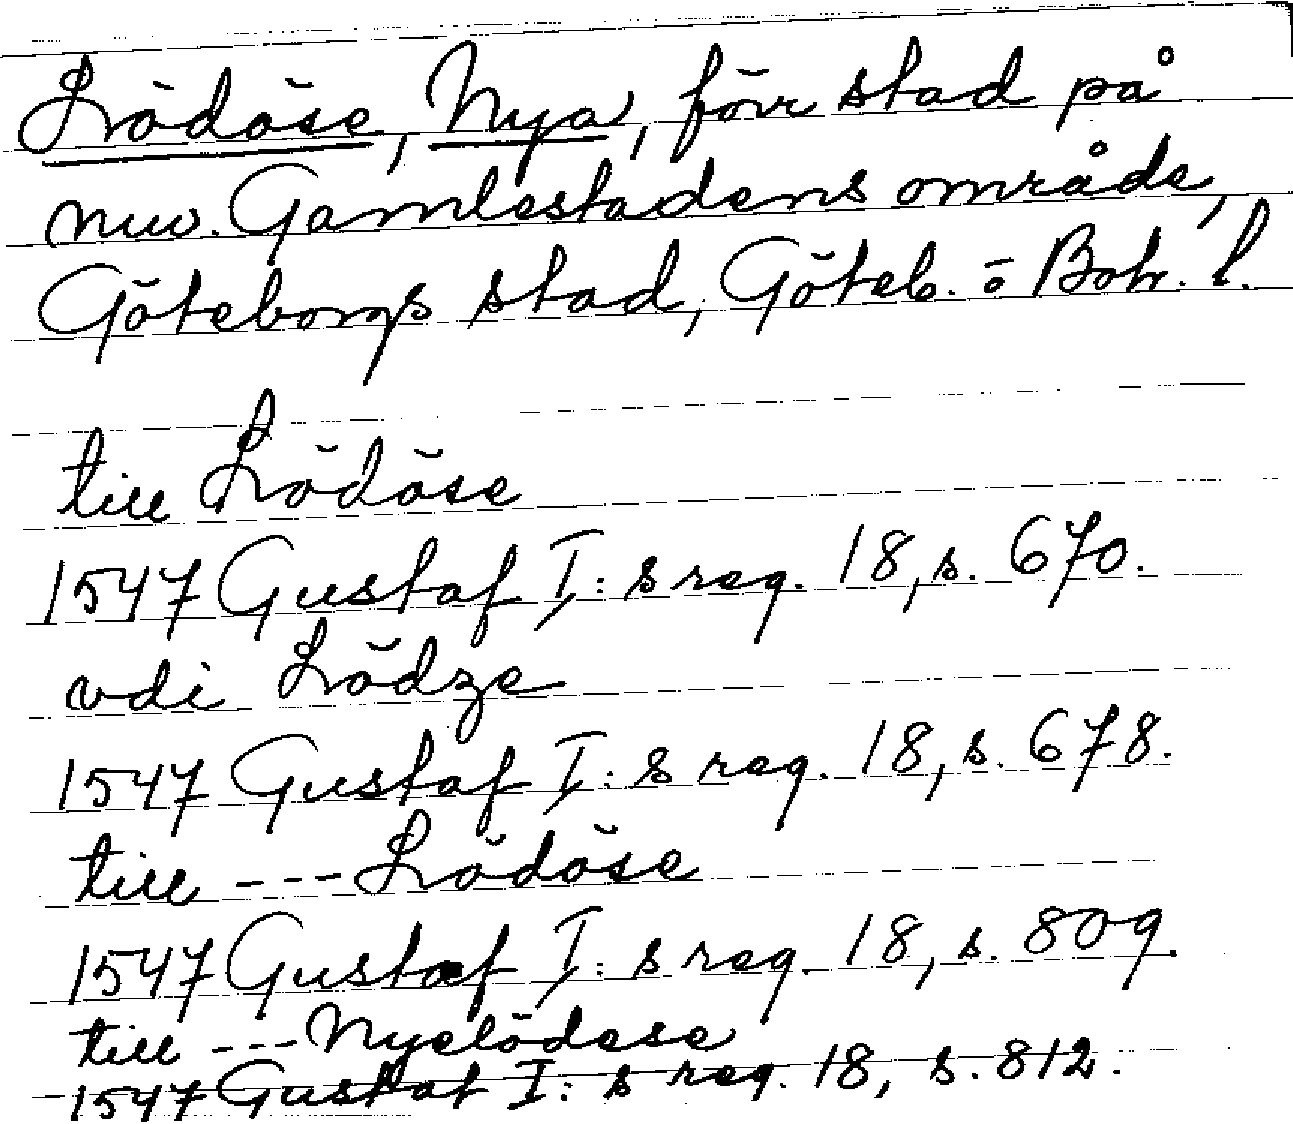 Lödöse, Nya, förr stad på
nuv. Gamlestadens område,
Göteborgs stad, Göteb. o Boh. l.
till Lödöse
1547 Gustaf I:s reg. 18, s. 670.
vdi Lödze
1547 Gustaf I:s reg. 18, s. 678.
till --- Lödöse
1547 Gustaf I:s reg. 18, s. 809.
till --- Nyelödese
1547 Gustaf I:s reg. 18, s. 812.